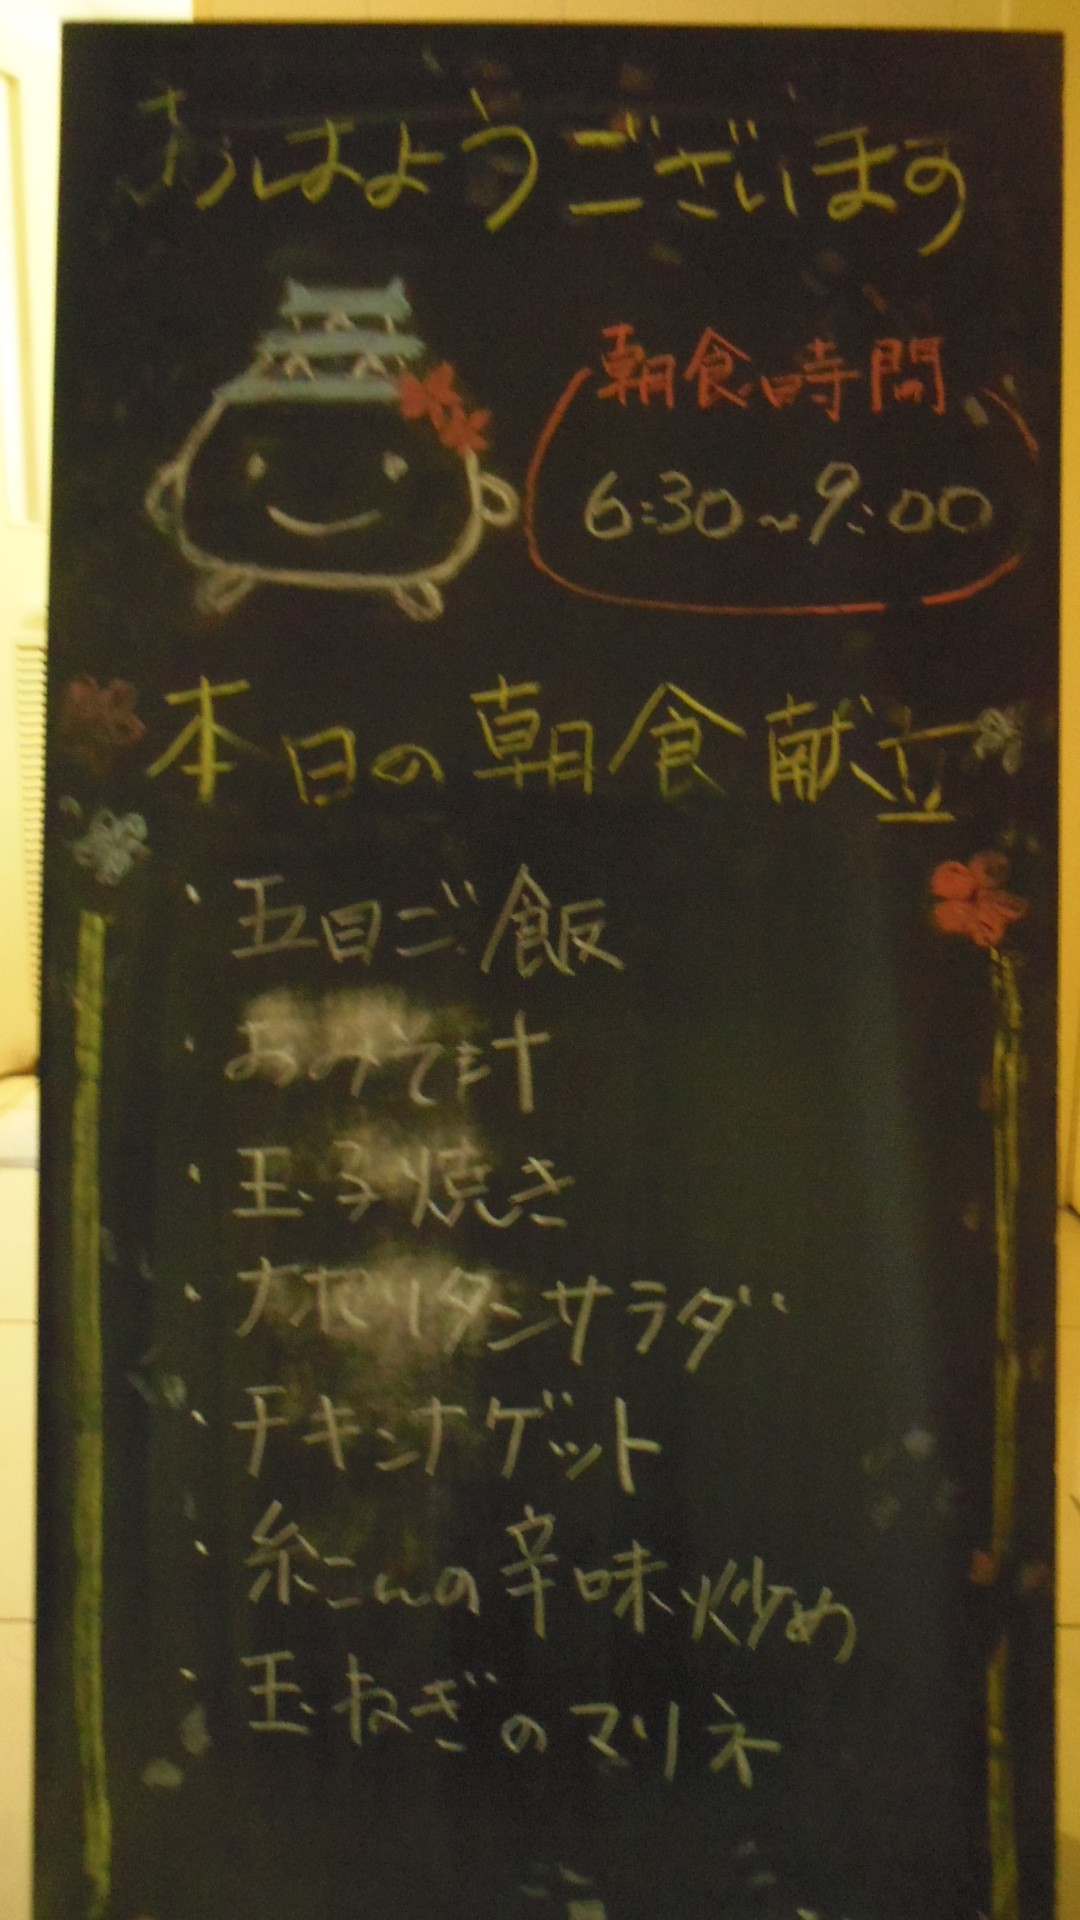 おはようございます
朝食時間
6:30～9:00
本日の朝食献立
・五目ご飯
・おみそ汁
・玉子焼き
・ナポリタンサラダ
・チキンナゲット
・糸こんの辛味炒め
・玉ねぎのマリネ